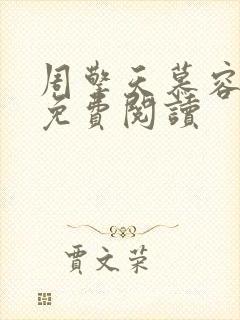 周擎天慕容
免費閱讀
賈文荣